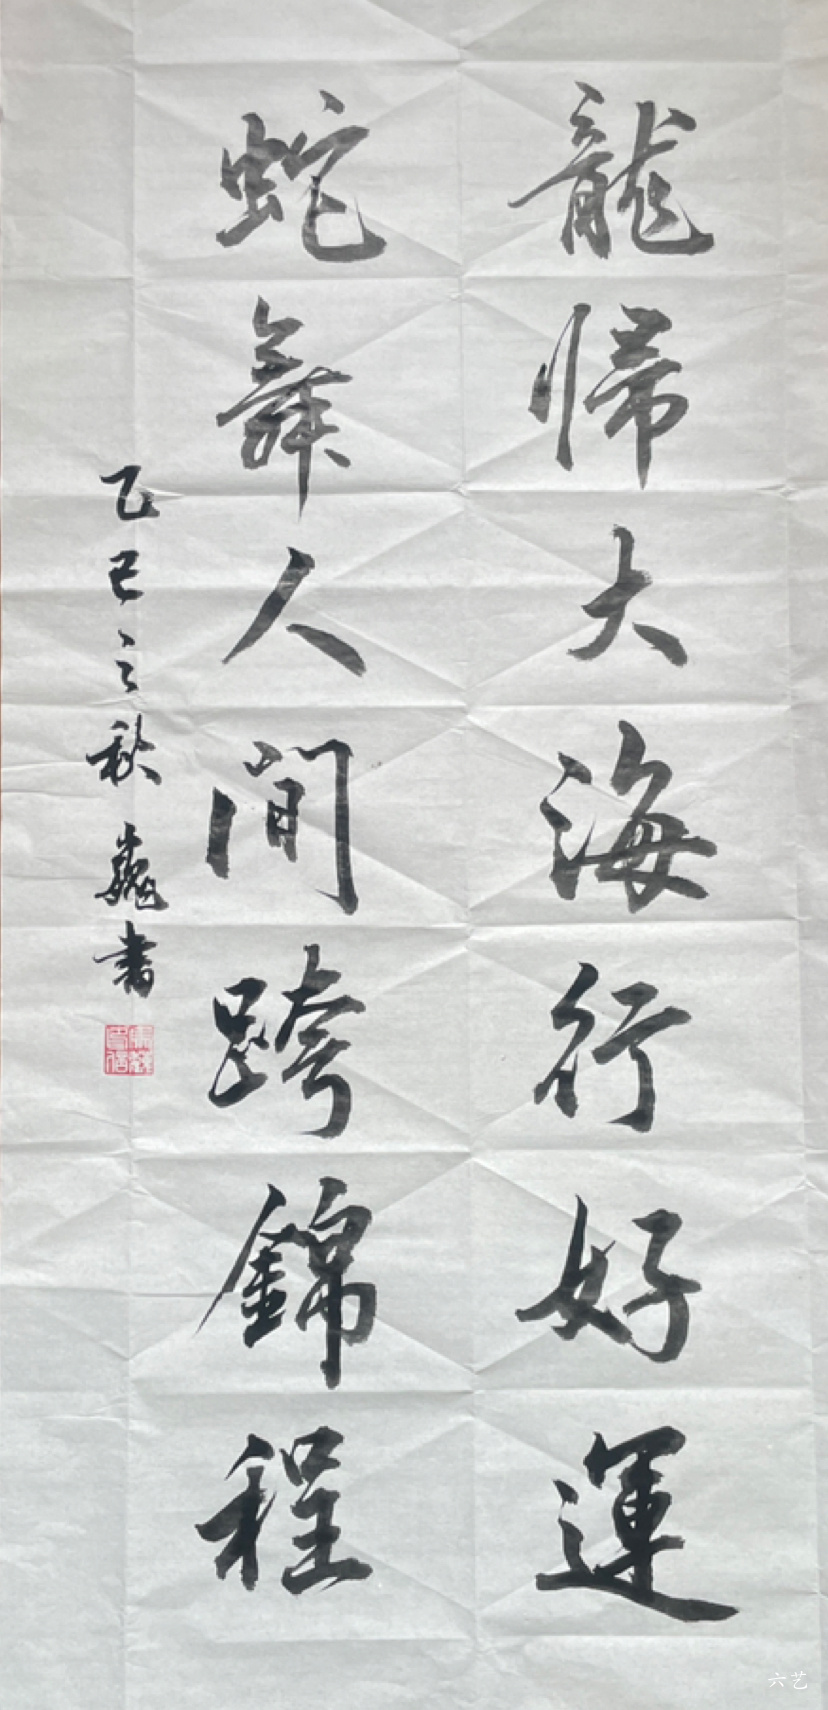 龍歸大海行好運
蛇舞人間跨錦程
乙巳之秋 巍書
六艺